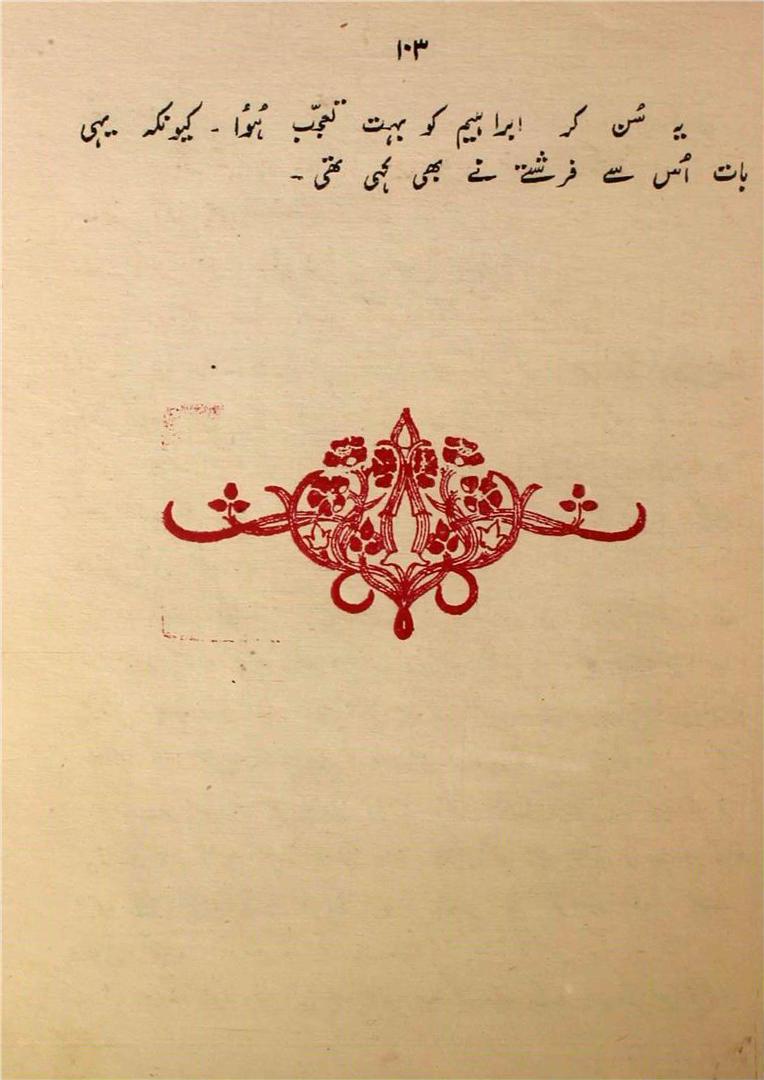 ۱۰۳
یہ سُن کر ابراہیم کو بہت تعجّب ہُوا ۔ کیونکہ یہی
بات اُس سے فرشتے نے بھی کہی تھی ۔